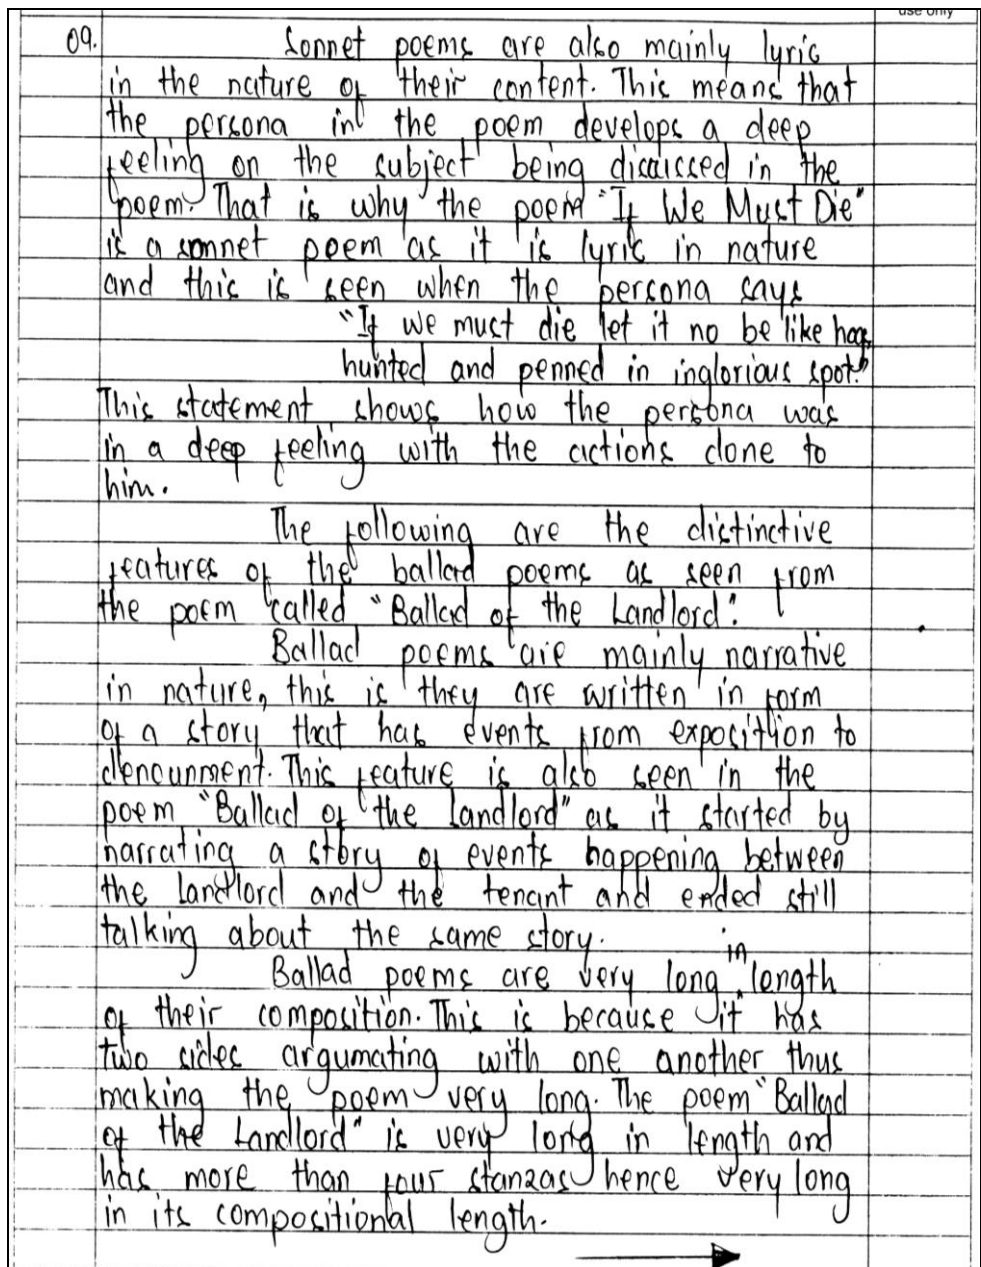 use only
09. Sonnet poems are also mainly lyric
in the nature of their content. This means that
the persona in the poem develops a deep
feeling on the subject being discussed in the
poem. That is why the poem "If We Must Die"
is a sonnet poem as it is lyric in nature
and this is seen when the persona says
"If we must die let it no be like hog
hunted and penned in inglorious spot."
This statement shows how the persona was
in a deep feeling with the actions done to
him.
The following are the distinctive
features of the ballard poems as seen from
the poem called "Ballad of the Landlord".
Ballad poems are mainly narrative
in nature, this is they are written in form
of a story that has events from exposition to
dencunment. This feature is also seen in the
poem "Ballad of the Landlord" as it started by
narrating a story of events happening between
the landlord and the tenant and ended still
talking about the same story.
Ballad poems are very long in length
of their composition. This is because it has
two sides argumating with one another thus
making the poem very long. The poem "Ballad
of the Landlord" is very long in length and
has more than four stanzas hence very long
in its compositional length.